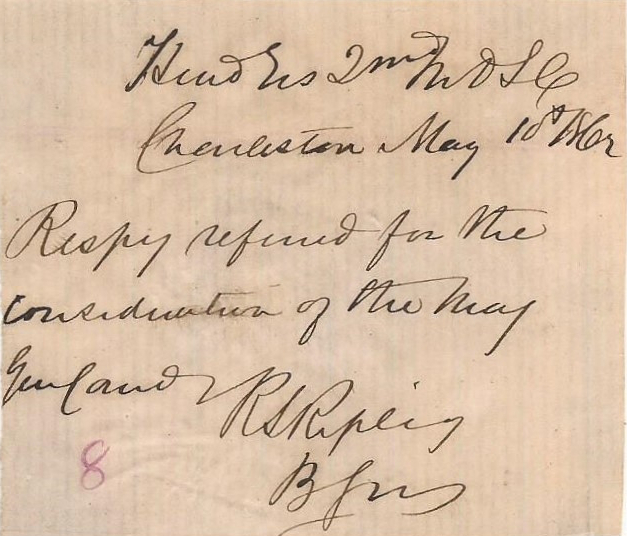 Head Qrs 2nd M D S C
Charleston May 10th 1862
Respy referred for the
consideration of the Maj
Genl Comdg
R S Ripley
B Gen
8